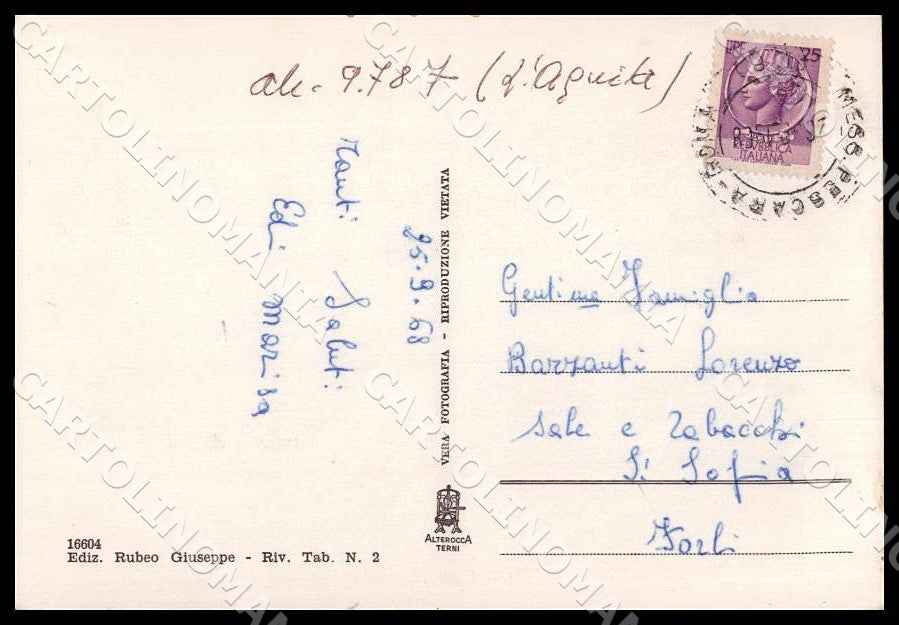 ab. 9.787 (L'Aquila)
LIRE 25
REPUBBLICA
ITALIANA
MESS. PESCARA - ROMA
Tanti Saluti
Edi Marisa
25.9.68
VERA FOTOGRAFIA - RIPRODUZIONE VIETATA
Gent.ma Famiglia
Barzanti Lorenzo
Sale e Tabacchi
S. Sofia
Forlì
ALTEROCCA
TERNI
16604
Ediz. Rubeo Giuseppe - Riv. Tab. N. 2
CARTOLINOMANIA